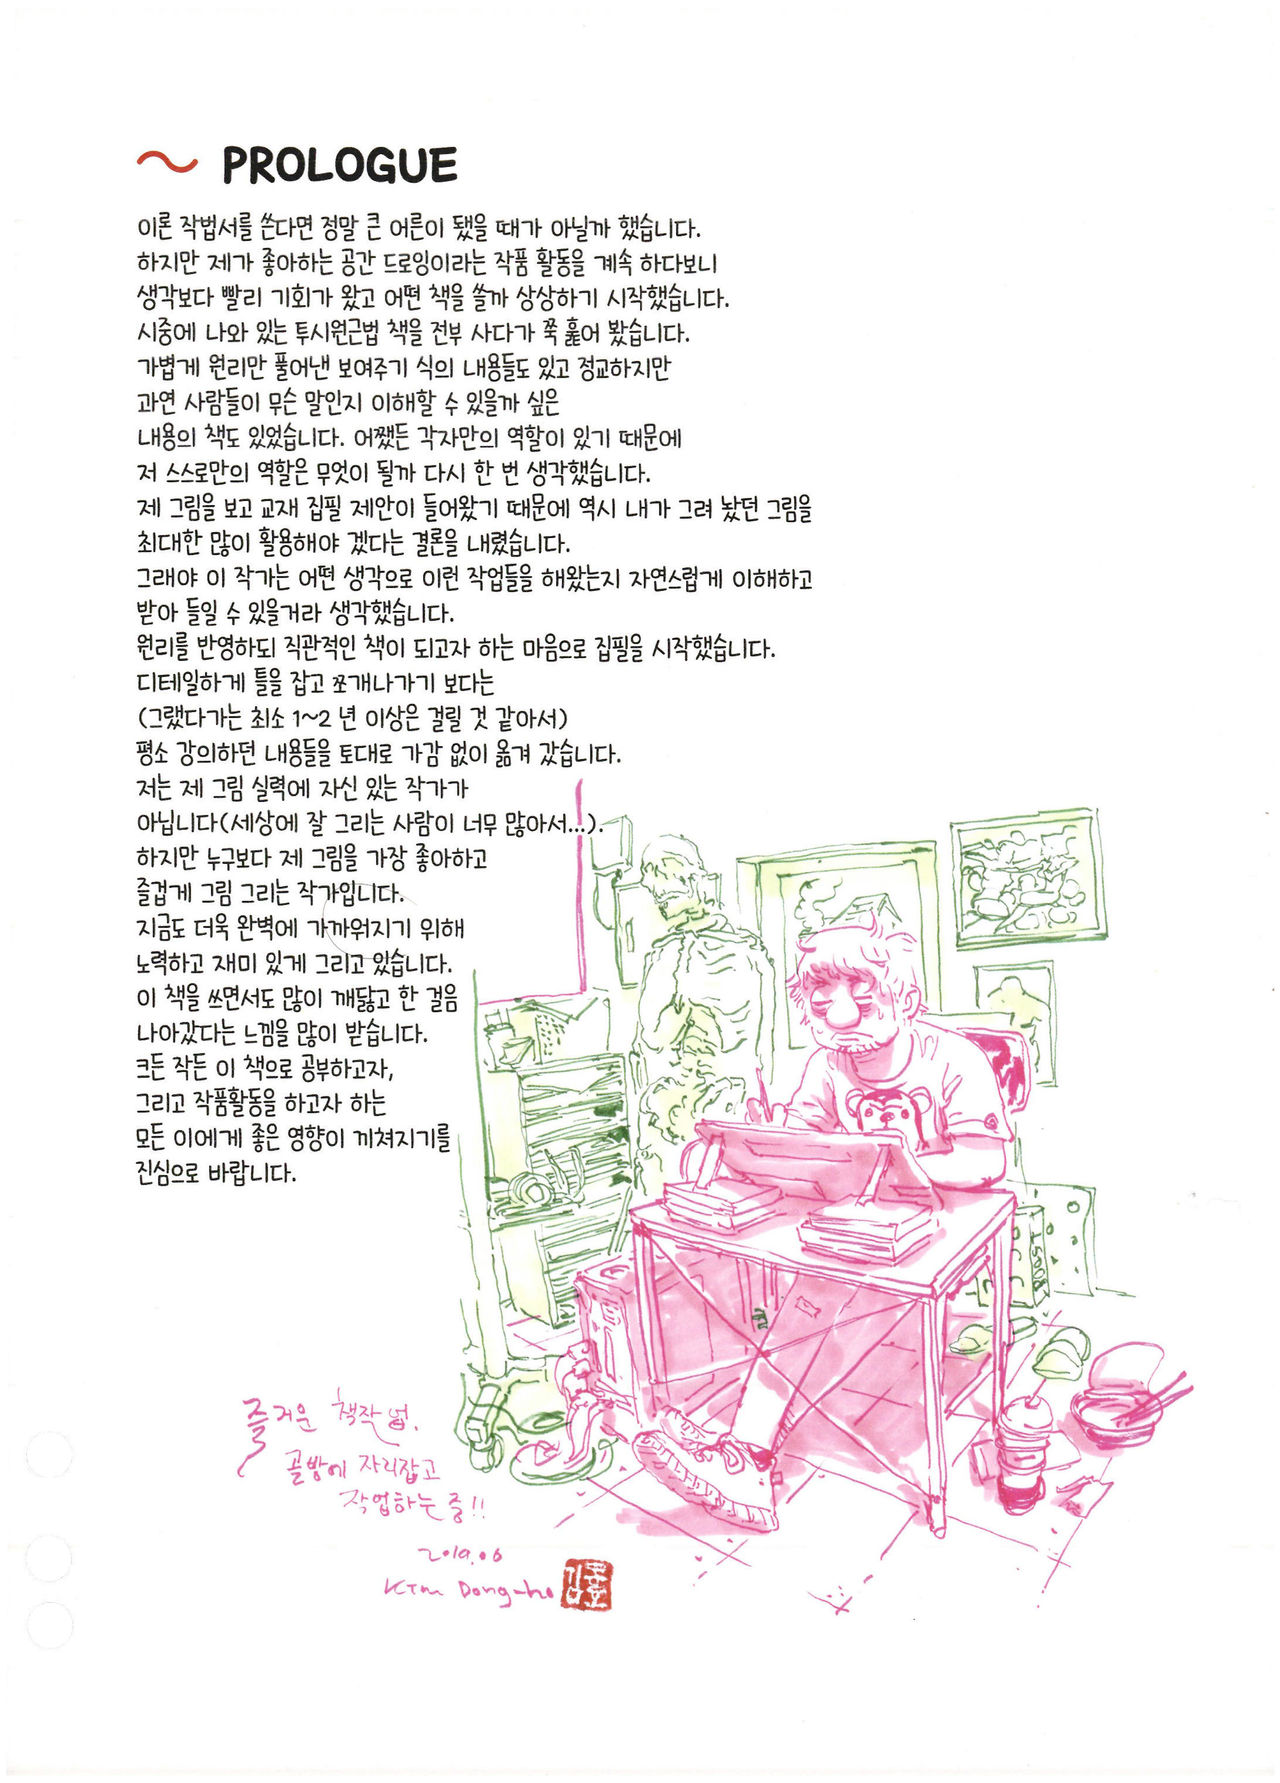 PROLOGUE
이론 작법서를 쓴다면 정말 큰 어른이 됐을 때가 아닐까 했습니다.
하지만 제가 좋아하는 공간 드로잉이라는 작품 활동을 계속 하다보니
생각보다 빨리 기회가 왔고 어떤 책을 쓸까 상상하기 시작했습니다.
시중에 나와 있는 투시원근법 책을 전부 사다가 쭉 훑어 봤습니다.
가볍게 원리만 풀어낸 보여주기 식의 내용들도 있고 정교하지만
과연 사람들이 무슨 말인지 이해할 수 있을까 싶은
내용의 책도 있었습니다. 어쨌든 각자만의 역할이 있기 때문에
저 스스로만의 역할은 무엇이 될까 다시 한 번 생각했습니다.
제 그림을 보고 교재 집필 제안이 들어왔기 때문에 역시 내가 그려 놨던 그림을
최대한 많이 활용해야 겠다는 결론을 내렸습니다.
그래야 이 작가는 어떤 생각으로 이런 작업들을 해왔는지 자연스럽게 이해하고
받아 들일 수 있을거라 생각했습니다.
원리를 반영하되 직관적인 책이 되고자 하는 마음으로 집필을 시작했습니다.
디테일하게 틀을 잡고 쪼개나가기 보다는
(그랬다가는 최소 1~2 년 이상은 걸릴 것 같아서)
평소 강의하던 내용들을 토대로 가감 없이 옮겨 갔습니다.
저는 제 그림 실력에 자신 있는 작가가
아닙니다(세상에 잘 그리는 사람이 너무 많아서...).
하지만 누구보다 제 그림을 가장 좋아하고
즐겁게 그림 그리는 작가입니다.
지금도 더욱 완벽에 가까워지기 위해
노력하고 재미 있게 그리고 있습니다.
이 책을 쓰면서도 많이 깨닳고 한 걸음
나아갔다는 느낌을 많이 받습니다.
크든 작든 이 책으로 공부하고자,
그리고 작품활동을 하고자 하는
모든 이에게 좋은 영향이 끼쳐지기를
진심으로 바랍니다.
BOOST
즐거운 책작업.
골방에 자리잡고
작업하는 중!!
2019.06
KIM Dong-ho